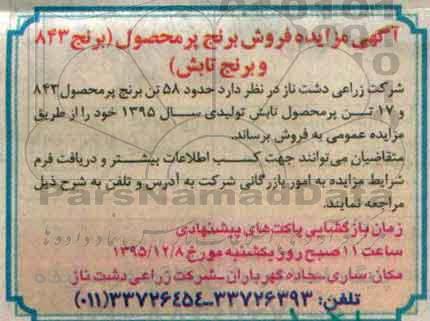 آگهی مزایده فروش برنج پرمحصول (برنج ۸۴۳
و برنج تابش)
شرکت زراعی دشت ناز در نظر دارد حدود ۵۸ تن برنج پرمحصول ۸۴۳
و ۱۷ تن پرمحصول تابش تولیدی سال ۱۳۹۵ خود را از طریق
مزایده عمومی به فروش برساند.
متقاضیان می‌توانند جهت کسب اطلاعات بیشتر و دریافت فرم
شرایط مزایده به امور بازرگانی شرکت به آدرس و تلفن به شرح ذیل
مراجعه نمایند.
ParsNamadData
زمان بازگشایی پاکت‌های پیشنهادی
ساعت ۱۱ صبح روز یکشنبه مورخ ۱۳۹۵/۱۲/۸
مکان: ساری، جاده گهرباران - شرکت زراعی دشت ناز
تلفن: ۳۳۷۲۶۳۹۳-۳۳۷۲۶۴۵۴(۰۱۱)